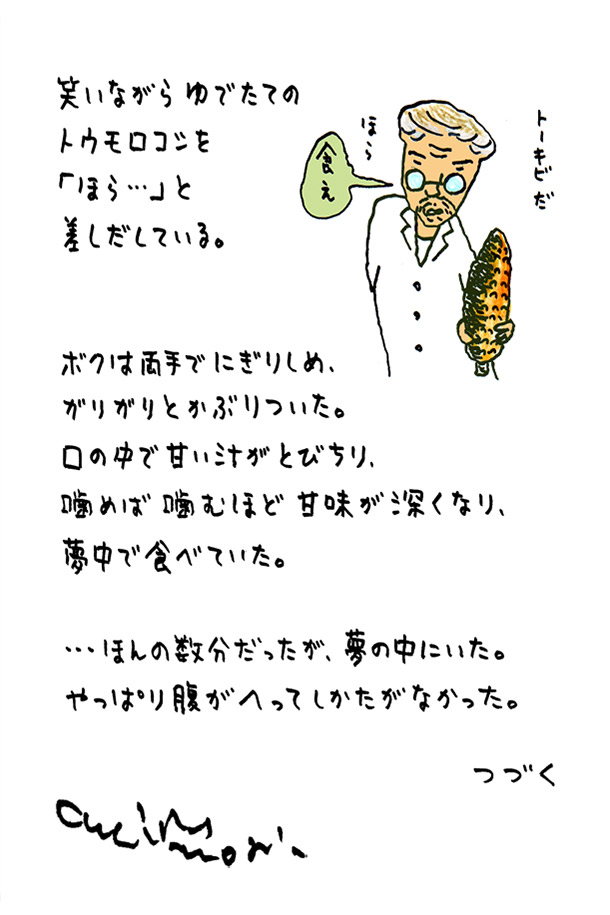 笑いながら ゆでたての
トウモロコシを
「ほら…」と
差しだしている。
トーキビだ
ほら
食え
ボクは両手でにぎりしめ、
がりがりとかぶりついた。
口の中で甘い汁がとびちり、
噛めば噛むほど 甘味が深くなり、
夢中で食べていた。
…ほんの数分だったが、夢の中にいた。
やっぱり腹がへってしかたがなかった。
つづく